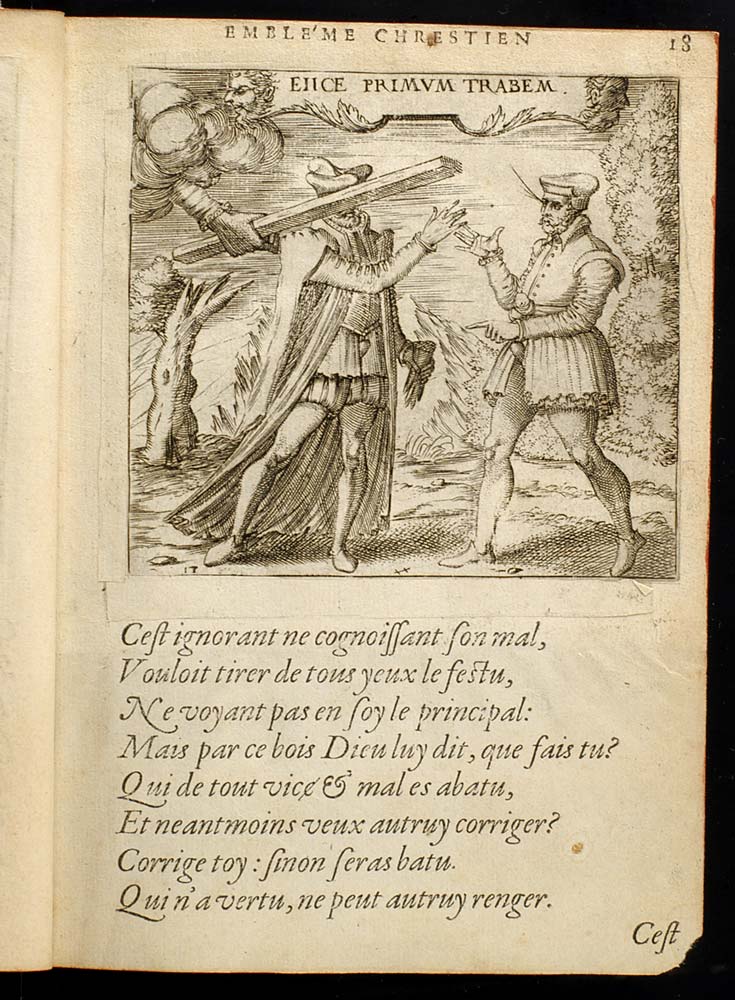 EMBLE'ME CHRESTIEN
18
EIICE PRIMVM TRABEM.
Ceſt ignorant ne cognoiſſant ſon mal,
Vouloit tirer de tous yeux le feſtu,
Ne voyant pas en ſoy le principal:
Mais par ce bois Dieu luy dit, que fais tu?
Qui de tout vice & mal es abatu,
Et neantmoins veux autruy corriger?
Corrige toy: ſinon ſeras batu.
Qui n'a vertu, ne peut autruy renger.
Ceſt